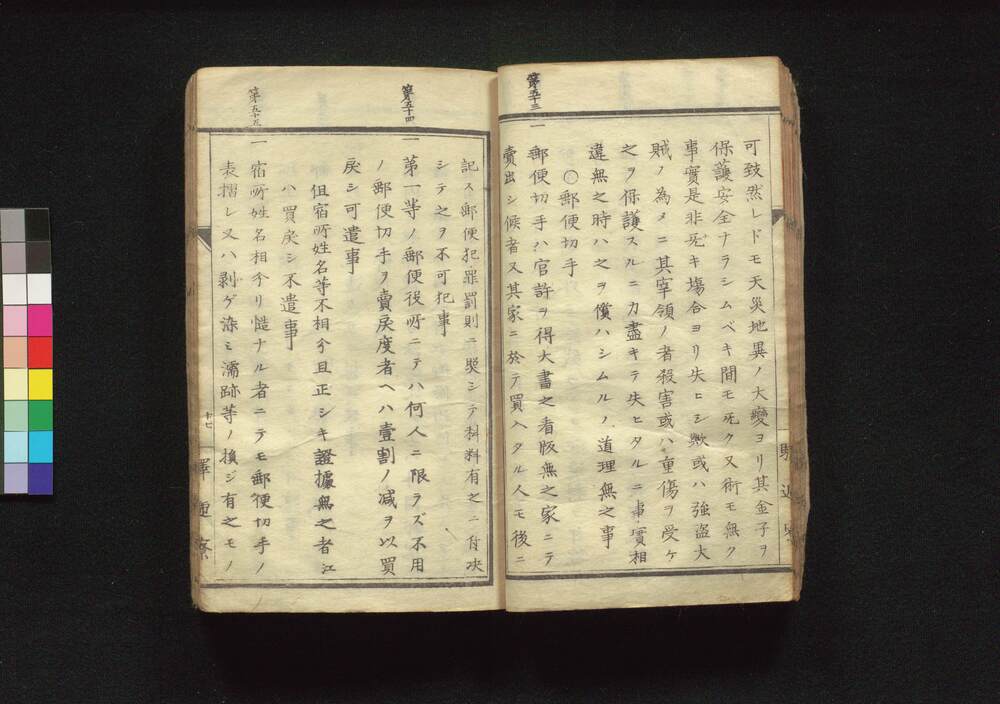 可致然レドモ天災地異ノ大變ヨリ其金子ヲ
保護安全ナラシムベキ間モ旡ク又術モ無ク
事實是非旡キ塲合ヨリ失ヒシ歟或ハ強盗大
賊ノ為メニ其宰領ノ者殺害或ハ重傷ヲ受ケ
之ヲ保護スルニ力盡キテ失ヒタルニ事實相
違無之時ハ之ヲ償ハシムルノ道理無之事
〇郵便切手
第五十三
一郵便切手ハ官許ヲ得大書之看版無之家ニテ
賣出シ候者又其家ニ於テ買入タル人モ後ニ
記ス郵便犯罪罰則ニ照シテ科料有之ニ付决
シテ之ヲ不可犯事
第五十四
一第一等ノ郵便役所ニテハ何人ニ限ラズ不用
ノ郵便切手ヲ賣戻度者ヘハ壹割ノ减ヲ以買
戻シ可遣事
但宿所姓名等不相分且正シキ證據無之者江
ハ買戻シ不遣事
第五十五
一宿所姓名相分リ慥ナル者ニテモ郵便切手ノ
表摺レ又ハ剥ゲ染ミ濡跡等ノ損ジ有之モノ
十七
驛逓寮